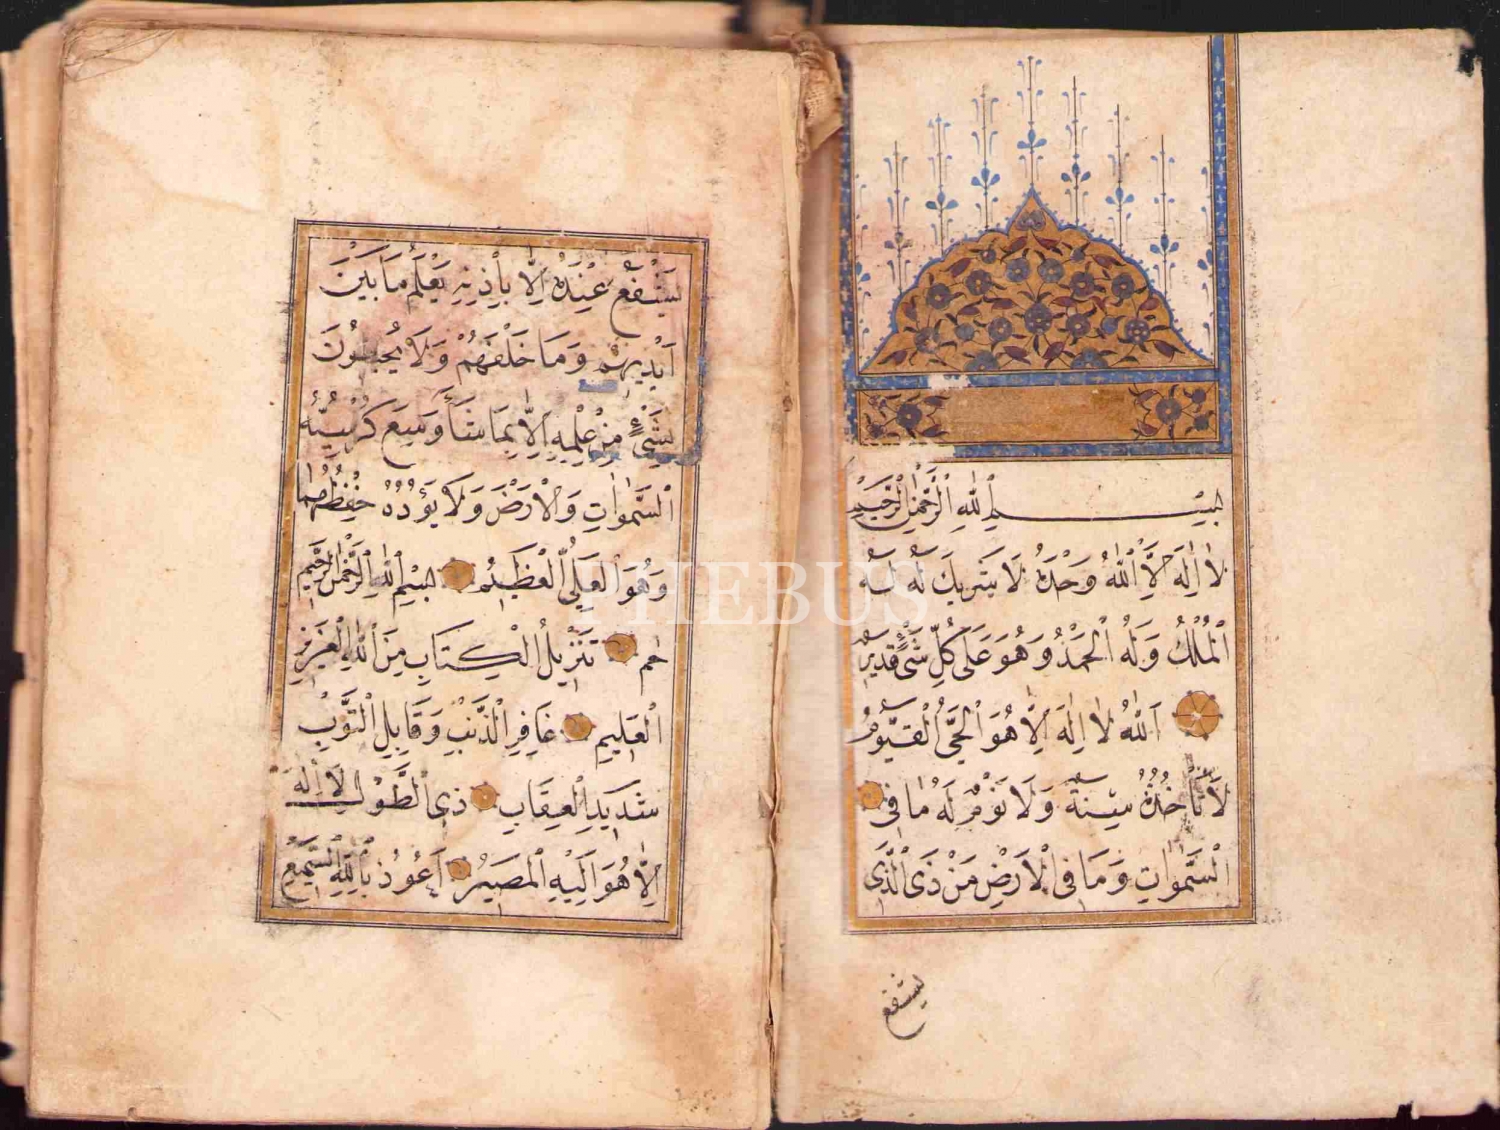 بِسْمِ اللهِ الرَّحْمٰنِ الرَّحِيْمِ
لَا اِلٰهَ اِلَّا اللهُ وَحْدَهُ لَا شَرِيكَ لَهُ لَهُ
الْمُلْكُ وَلَهُ الْحَمْدُ وَهُوَ عَلَى كُلِّ شَىْءٍ قَدِيرٌ
اَللهُ لَا اِلٰهَ اِلَّا هُوَ الْحَىُّ الْقَيُّومُ
لَا تَاْخُذُهُ سِنَةٌ وَلَا نَوْمٌ لَهُ مَا فِى
السَّمٰوَاتِ وَمَا فِى الْاَرْضِ مَنْ ذَى الَّذَى
يشفع
يَشْفَعُ عِنْدَهُ اِلَّا بِاِذْنِهِ يَعْلَمُ مَا بَيْنَ
اَيْدِيهِمْ وَمَا خَلْفَهُمْ وَلَا يُحِيطُونَ
بِشَىْءٍ مِنْ عِلْمِهِ اِلَّا بِمَا شَاءَ وَسِعَ كُرْسِيُّهُ
السَّمٰوَاتِ وَالْاَرْضَ وَلَا يَؤُدُهُ حِفْظُهُمَا
وَهُوَ الْعَلِىُّ الْعَظِيمُ بِسْمِ اللهِ الرَّحْمٰنِ الرَّحِيمِ
حم تَنْزِيلُ الْكِتَابِ مِنَ اللهِ الْعَزِيزِ
الْعَلِيمِ غَافِرِ الذَّنْبِ وَقَابِلِ التَّوْبِ
شَدِيدِ الْعِقَابِ ذِى الطَّوْلِ لَا اِلٰهَ
اِلَّا هُوَ اِلَيْهِ الْمَصِيرُ اَعُوذُ بِاللهِ السَّمِيعِ
PHEBUS